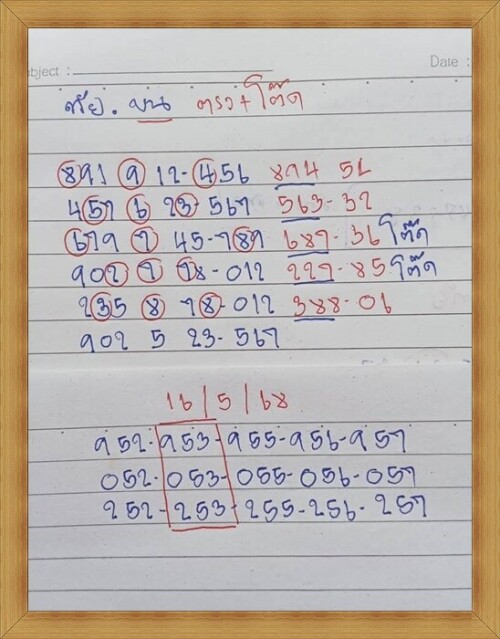 bject :
Date :
ตรง + โต๊ด
891 9 12-456 894 51
457 6 23-567 563-32
679 7 45-789 687-36 โต๊ด
902 7 78-012 227-85 โต๊ด
235 8 78-012 388-06
902 5 23-567
16/5/68
952-953-955-956-957
052-053-055-056-057
252-253-255-256-257